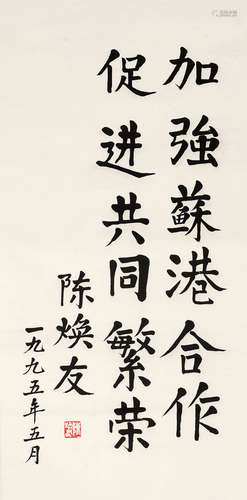 加強蘇港合作
促进共同繁荣
陈焕友
一九九五年五月